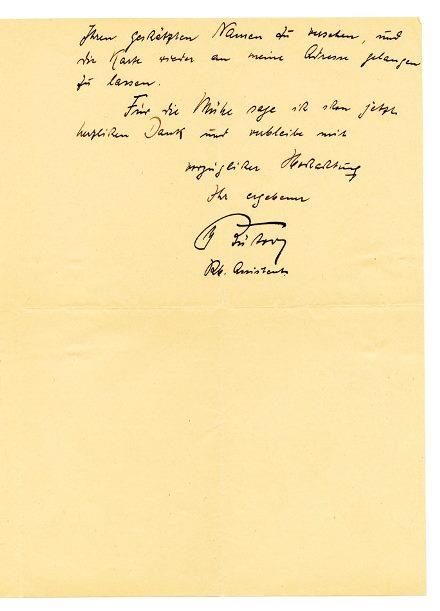 Ihren geschätzten Namen zu versehen, und
die Karte wieder an meine Adresse gelangen
zu lassen.
Für die Mühe sage ich schon jetzt
herzlichen Dank und verbleibe mit
vorzüglicher Hochachtung
Ihr ergebener
Rb. Assistent